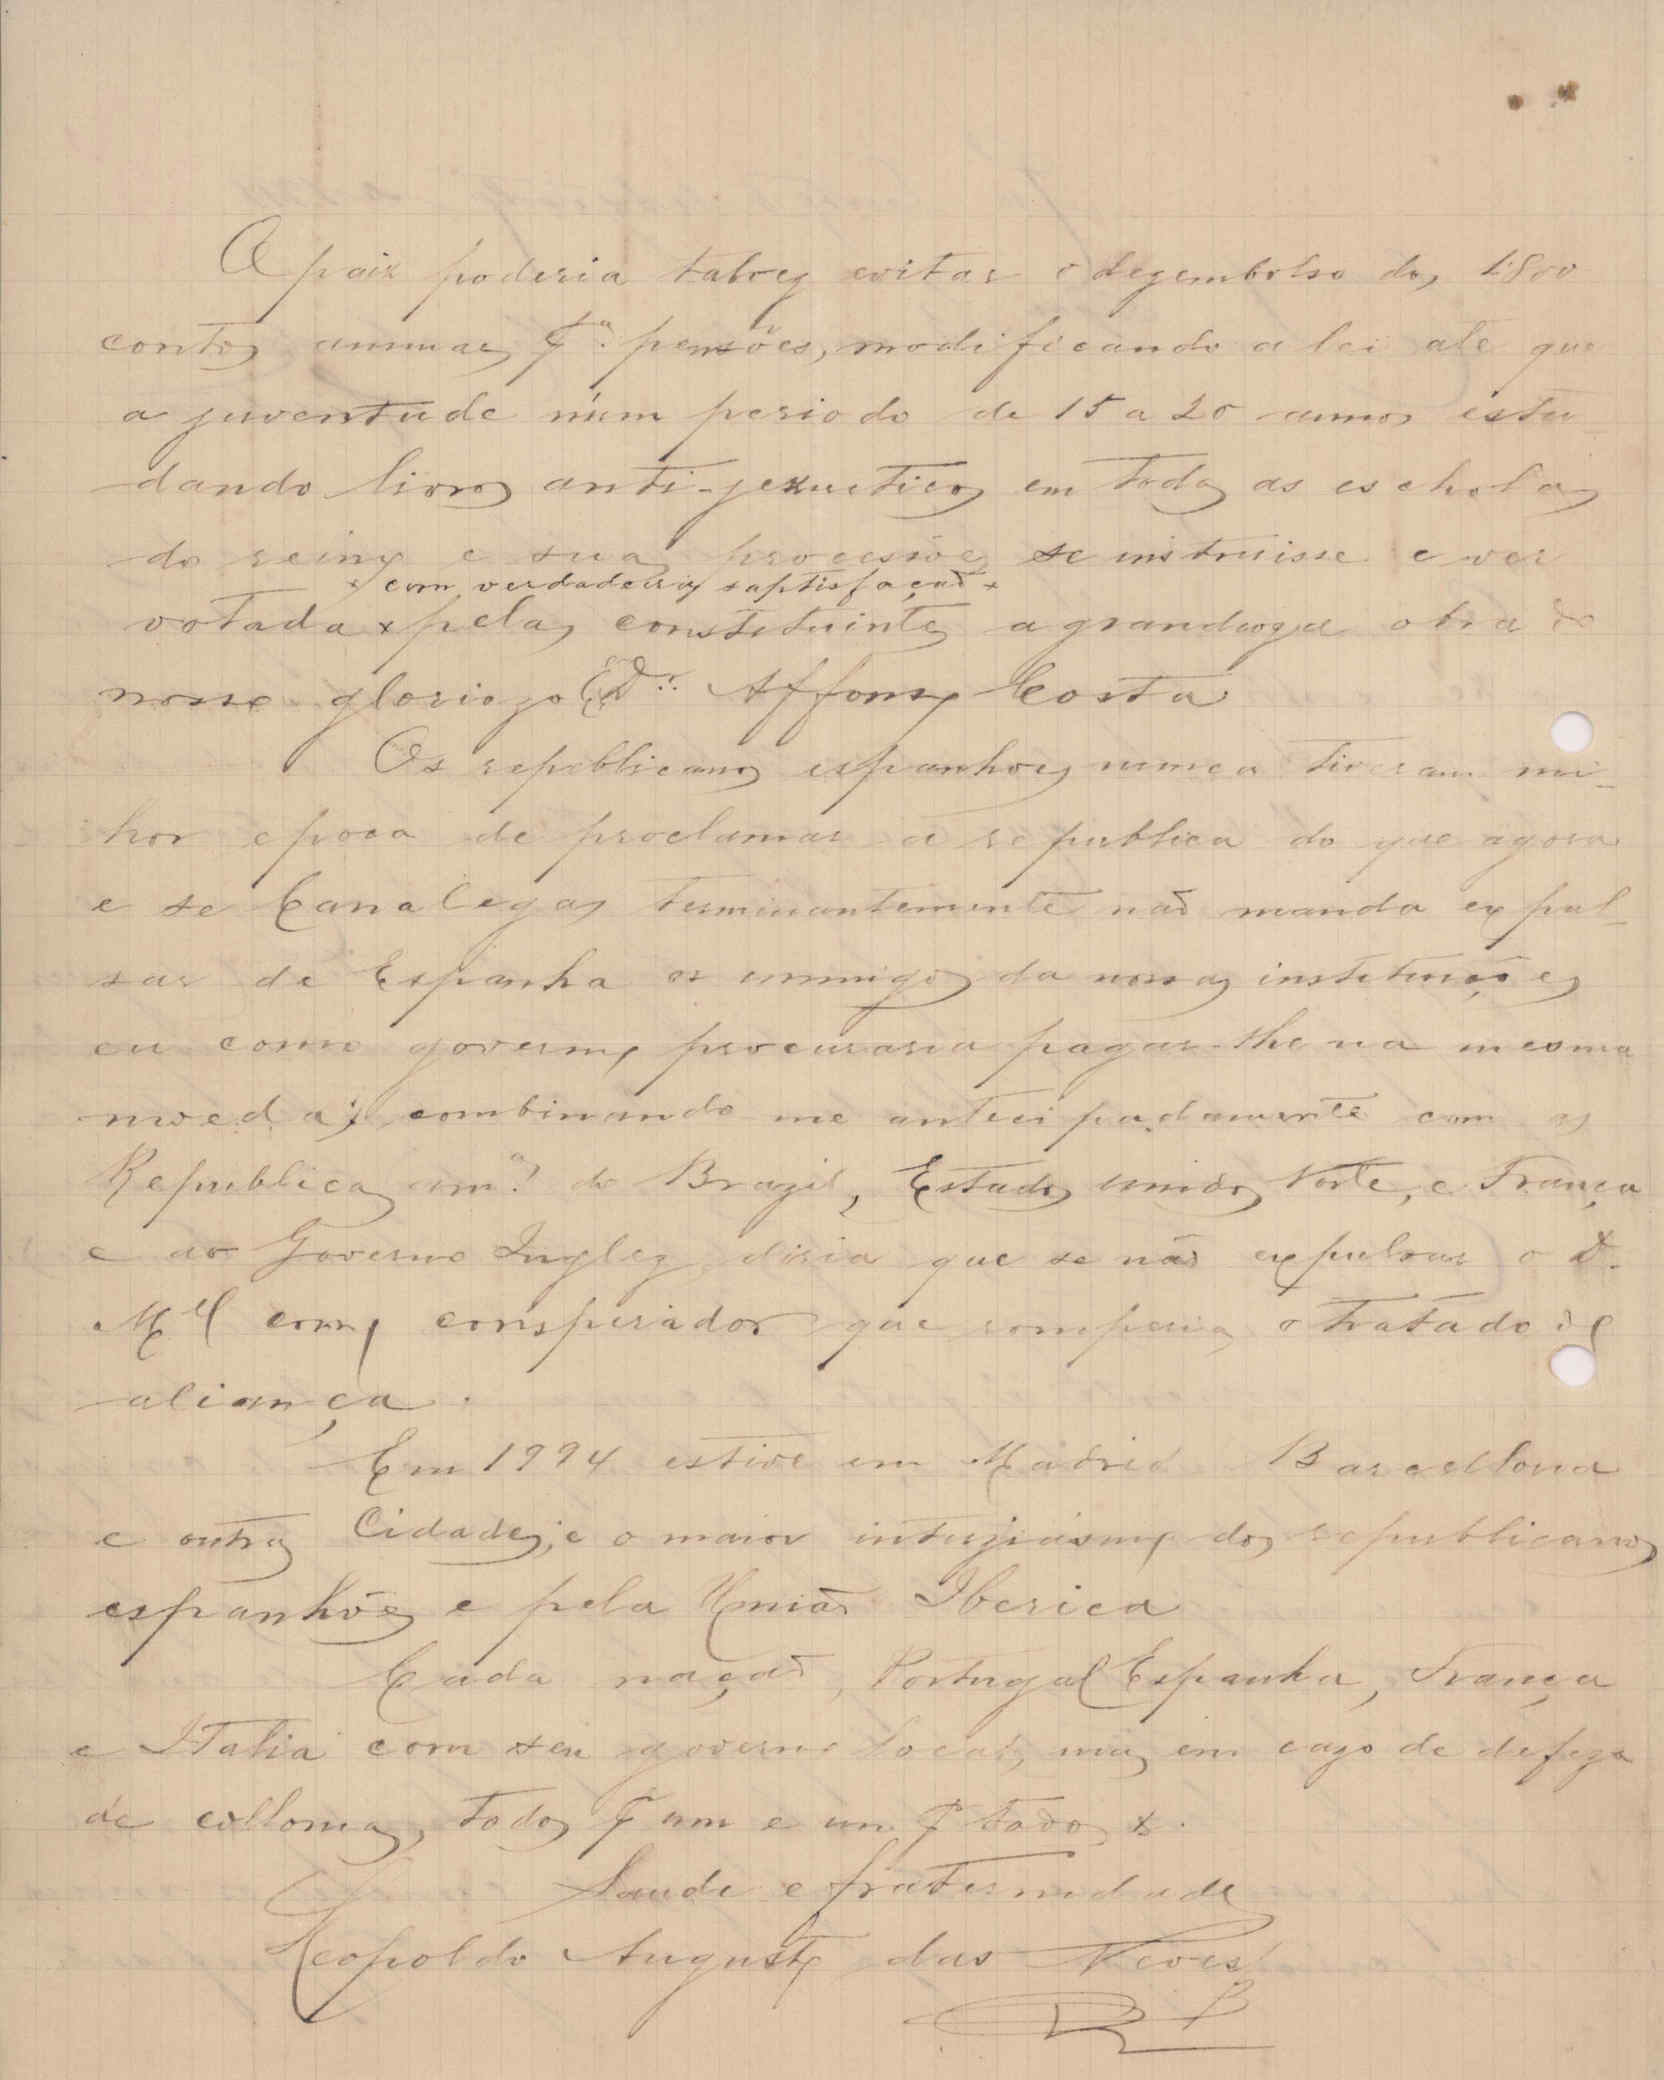 O paiz poderia talvez evitar o dezembolso dos 1:800
contos annuaes pª. pensões, modificando a lei ate que
a juventude n'um periodo de 15 a 20 annos estu-
dando livros anti-jezucticos em todas as escholas
do reino e sua procesões se instruisse e ver
x com verdadeira saptisfação x
votada x pelas constituintes a grandioza obra do
nosso gloriozo Dr. Affonso Costa
Os republicanos espanhoes nunca tiveram mi-
hor epoca de proclamar a republica do que agora
e se Canalegas terminantemente não manda expul-
sar de Espanha os inmigos da nossas instituições
eu como governo, procuraria pagar-lhe na mesma
moeda; combinando me antecipadamente com as
Republicas amª. do Brazil, Estados unidos Norte, e França
e ao Governo Inglez diria que se não expulsar o D.
Mel como conspirador que romperia o tratado de
aliança.
Em 1994 estive em Madrid Barcellona
e outras Cidades, e o maior intuziásmo dos republicanos
espanhões e pela União Iberica
Cada nação, Portugal Espanha, França
e Italia com seu governo local, mas em cazo de defeza
de collonias, todos p um e um p todos x.
Saude e fraternidade
Leopoldo Augusto das Neves